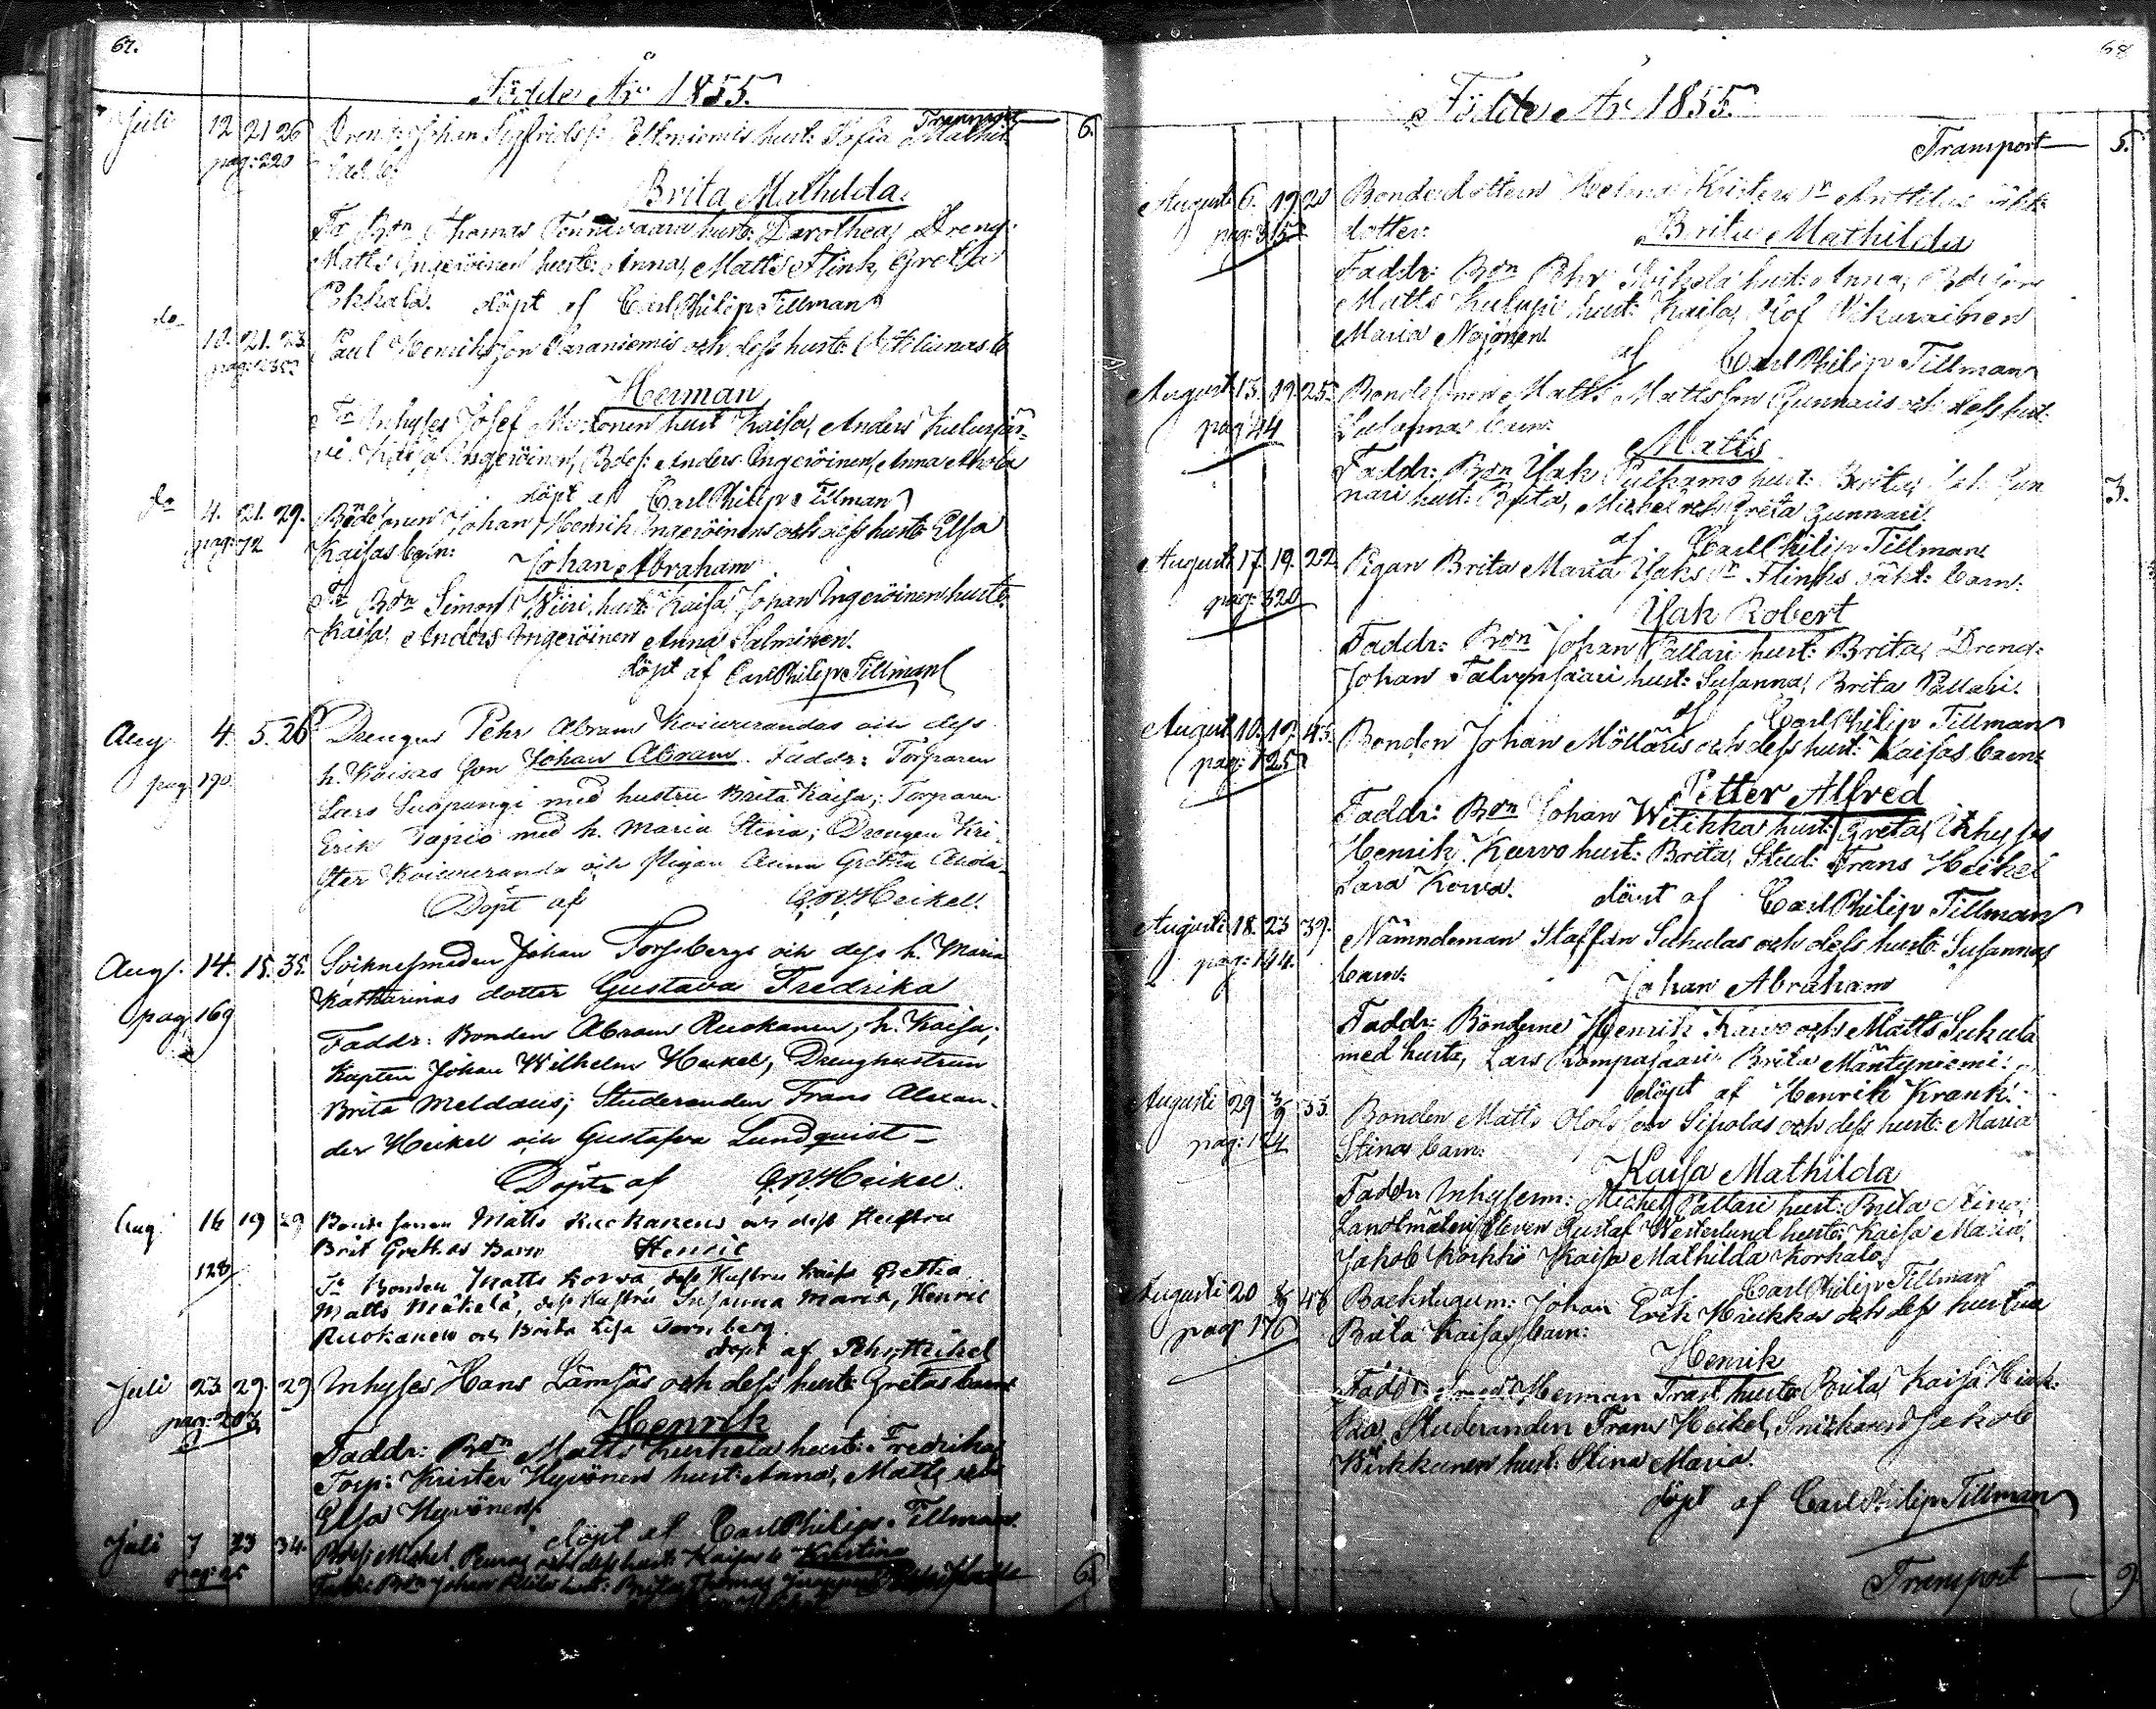 67.
Födde År 1855.
Transport 6.
Juli 12 21 26 Dreng: Johan Sigfridss: hust: Sofia Mathil
pag: 220
Brita Mathilda.
Fr Bdn Thomas hust: Dorothea, Dreng:
Matts Ingeröinen hust: Anna, Matts Flink, Greta
döpt af Carl Philip Tillman
do 10. 21. 23. Paul Henriksson och dess hust:
pag:
Herman
Fr Inhyses Josef hust Kaisa, Anders Kulusjär=
vi Kaisa Ingeröinen, Bdes: Anders Ingeröinen, Anna Ahola
döpt af Carl Philip Tillman
do 4. 21. 29. Bdesonen Johan Henrik Ingeröinens och dess hust: Elsa
pag: 72 Kaisas barn:
Johan Abraham
Fr Bdn Simon Wiiri hust: Kaisa, Johan Ingeröinen hust:
Kaisa, Anders Ingeröinen Anna Salminen.
döpt af Carl Philip Tillman
Aug 4. 5. 26 Drengen Pehr Abram Koivurandas och dess
pag 190. h. Kaisas son Johan Abram. Faddr: Torparen
Lars Suopangi med hustru Brita Kaisa; Torparen
Erik Tapio med h. Maria Stina; Drengen Kri-
ster Koivuranda och Pigan Anna Gretha Ahola
Döpt af Heikel.
Aug. 14. 15. 35. Socknesmeden Johan Forssbergs och dess h. Maria
Katharinas dotter Gustava Fredrika
pag 169
Faddr: Bonden Abram Ruokanen, h. Kaisa;
Kapten Johan Wilhelm Heikel, Drenghustrun
Brita Meldaus; Studeranden Frans Alexan-
der Heikel och Gustafva Lundquist
Döpt af Heikel.
Aug 16 19 29 Bonde sonen Matts Ruokanens och dess Hustru
Brit Grethas Barn Henric
128
Fr Bonden Matts Korva, dess Hustru Kaisa Gretha
Matts Mäkelä, dess Hustru Susanna Maria, Henric
Ruokanen och Brita Lisa Tornberg.
döpt af Pehr Heikel
Juli 23. 29. 29 Inhyses Hans Lämsäs och dess hust: Gretas barn
pag: 203
Henrik
Faddr: Bdn Matts Kurkela hust: Fredrika,
Torp: Krister Hyvönen hust: Anna, Matts och
Elsa Hyvönen.
döpt af Carl Philip Tillman.
Juli 7 23 34. Bdes: Michel Peuras och dess hust: Kaisas b Kristina
Faddr: Bdn Johan hust: Brita, Thomas
6.
68
Födde År 1855.
Transport 5.
Augusti 6. 19 20 Bondedottern Helena Kristersdr Anttilas oäkt:
pag: 315 dotter:
Brita Mathilda
Faddr: Bdn Pehr hust: Anna, Bdesonen
Matts hust: Kaisa, Olof Vikarainen
Maria Nojonen.
af Carl Philip Tillman
August 13. 19. 25. Bondesonen Matts Mattsson Gunnaris och dess hust:
pag 44 Susannas barn:
Matts
Faddr: Bdn Isak Pulkamo hust: Brita, Isak Gun
nari hust: Brita, Michel och Greta Gunnari. 3.
af Carl Philip Tillman
August 17. 19. 22. Pigan Brita Maria Isaksdr Flinks oäkt: barn:
pag: 320
Isak Robert
Faddr: Bdn Johan Pallari hust: Brita, Dreng:
Johan Talvensaari hust: Susanna, Brita Pallari.
af Carl Philip Tillman
August 10. 19. 45. Bonden Johan Möllaris och dess hust: Kaisas barn:
pag: 125
Petter Alfred
Faddr: Bdn Johan Wetikka hust: Greta, Inhyses
Henrik Karvo hust: Brita, Stud: Frans Heikel
Sara Korva. döpt af Carl Philip Tillman
Augusti 18. 23 39. Nämndeman Staffan Sukulas och dess hust: Susannas
pag: 144. barn:
Johan Abraham
Faddr: Bönderne Henrik Karvo och Matts Sukula
med hustr, Lars Kompasaari Brita Mäntyniemi.
döpt af Henrik Krank.
Augusti 29 3/9 33. Bonden Matts Olofsson Sipolas och dess hust: Maria
pag: 124 Stinas barn:
Kaisa Mathilda
Faddr Inhysem: Michel Pallari hust: Brita Stina,
Landtmäteri Eleven Gustaf Westerlund hust: Kaisa Maria,
Jakob Kaisa Mathilda Korkalo.
af Carl Philip Tillman
Augusti 20 48 Backstugum: Johan Erik Hiukkas och dess hustru
pag 176 Brita Kaisas barn:
Henrik
Faddr Herman Frast hustr: Brita, Kaisa Hiuk:
ka, Studeranden Frans Heikel, Snickaren Jakob
Kirkkanen hust: Stina Maria.
döpt af Carl Philip Tillman
Transport 9.